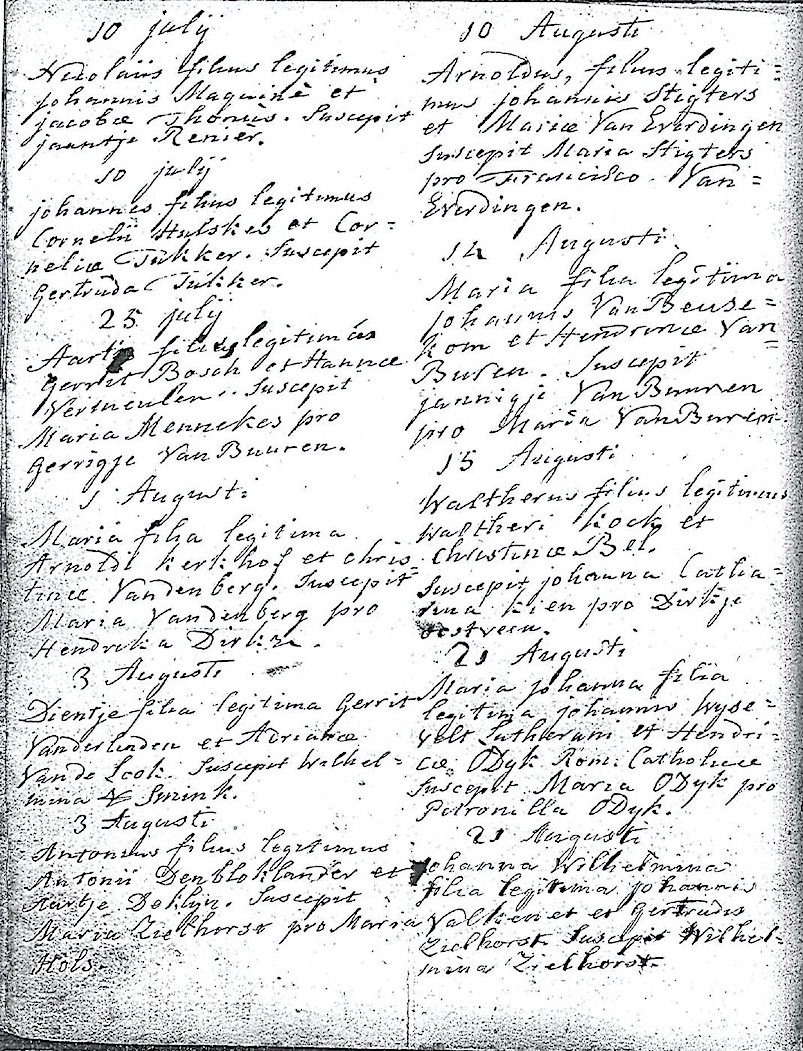 10 julij
Nicolaüs filius legitimus
johannis Maquinè et
jacobæ Thonüs. Suscepit
jaantje Renier.
10 julij
johannes filius legitimus
Cornelii Hulskes et Cor=
neliæ Tükker. Suscepit
Gertruda Tükker.
25 julij
filius legitimus
Gerrit Bosch et Hannæ
Vermeulen. Suscepit
Maria Mennekes pro
Gerrigje Van Buuren.
1 Augusti
Maria filia legitima
Arnoldi Kerkhof et Chris=
tinæ Vandenberg. Suscepit
Maria Vandenberg pro
Hendreka
3 Augusti
Dientje filia legitima Gerrit
Vanderlinden et Adrianæ
Van de Look. Suscepit Wilhel=
mina Smink.
3 Augusti
Antonius filius legitimus
Antonii Denbloklander et
Aartje Deklyn. Suscepit
Maria Zielhorst pro Maria
Hols.
10 Augusti
Arnoldus, filius legiti=
mus johannis Stigters
et Mariæ Van Everdingen
Suscepit Maria Stigters
pro Francisco Van=
Everdingen.
14 Augusti.
Maria filia legitima
johannis Van Beuse=
kom et Hendrinæ Van=
Buren. Suscepit
jannigje Van Buuren
pro Maria Van Buren.
15 Augusti
Waltherus filius legitimus
Waltheri Kock et
Christinæ Bel.
Suscepit johanna Catha=
rina Kien pro Dirkje
oostveen.
21 Augusti
Maria johanna filia
legitima johannis Wyse=
velt Lutherani et Hendri=
cæ ODyk Rom: Catholicæ
Suscepit Maria ODyk pro
Petronilla ODyk.
21 Augusti
johanna Wilhelmina
filia legitima johannis
Valkenet et Gertrudis
Zielhorst. Suscepit Wilhel=
mina Zielhorst.